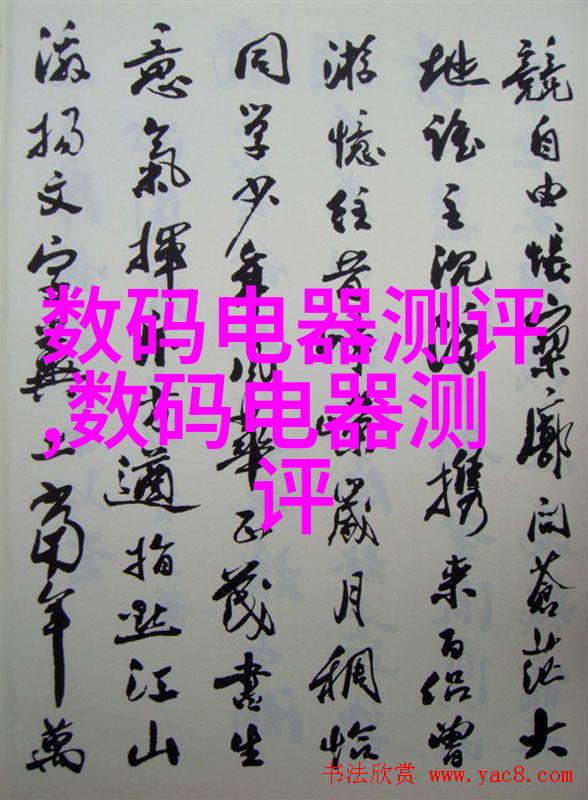 競自由悵寥廓问蒼茫大
地谁主沉浮携来百侣曾
游憶往昔峥嵘歲月稠恰
同学少年风華正茂書生
意氣揮斥方遒指點江山
激揚文字糞土當年萬
数码电器测评
,数码电器测
评
书法欣赏 www.yac8.com